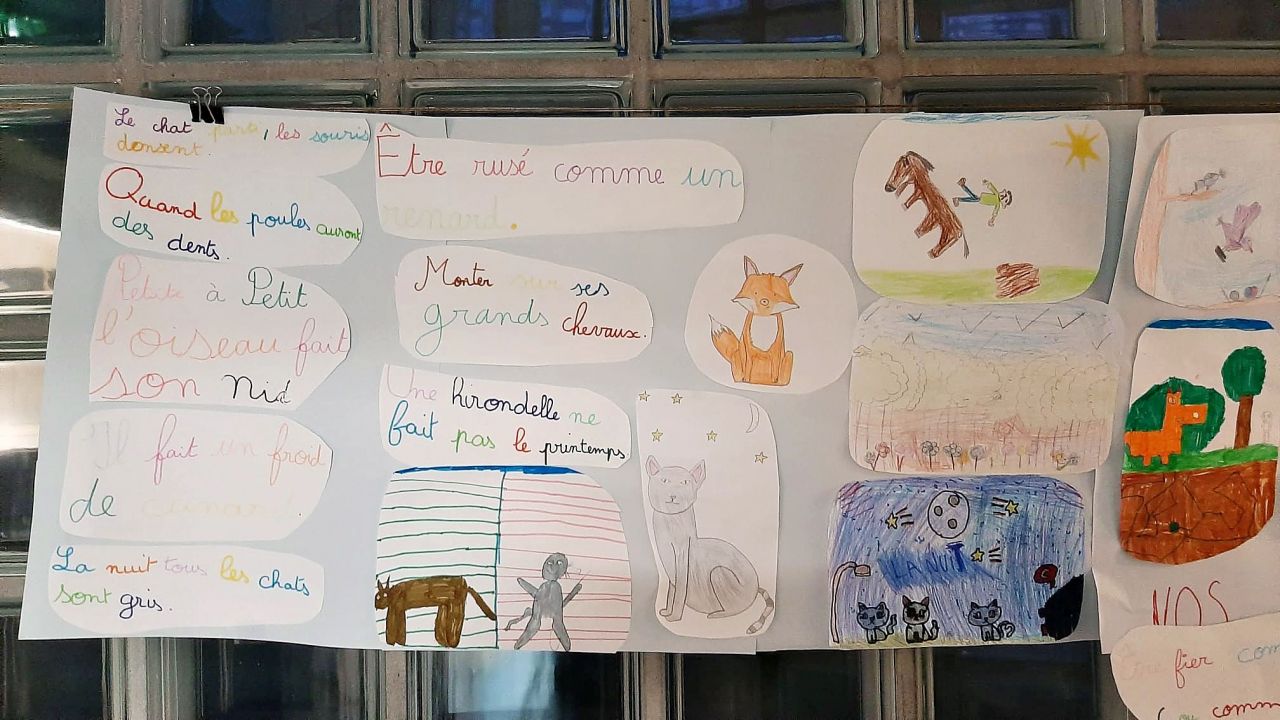 Le chat parti, les souris
dansent.
Quand les poules auront
des dents.
Petit à Petit
l'oiseau fait
son Nid
Il fait un froid
de canard.
La nuit tous les chats
sont gris.
Être rusé comme un
renard.
Monter sur ses
grands chevaux.
Une hirondelle ne
fait pas le printemps
LA NUIT
NOS
fier com
comm